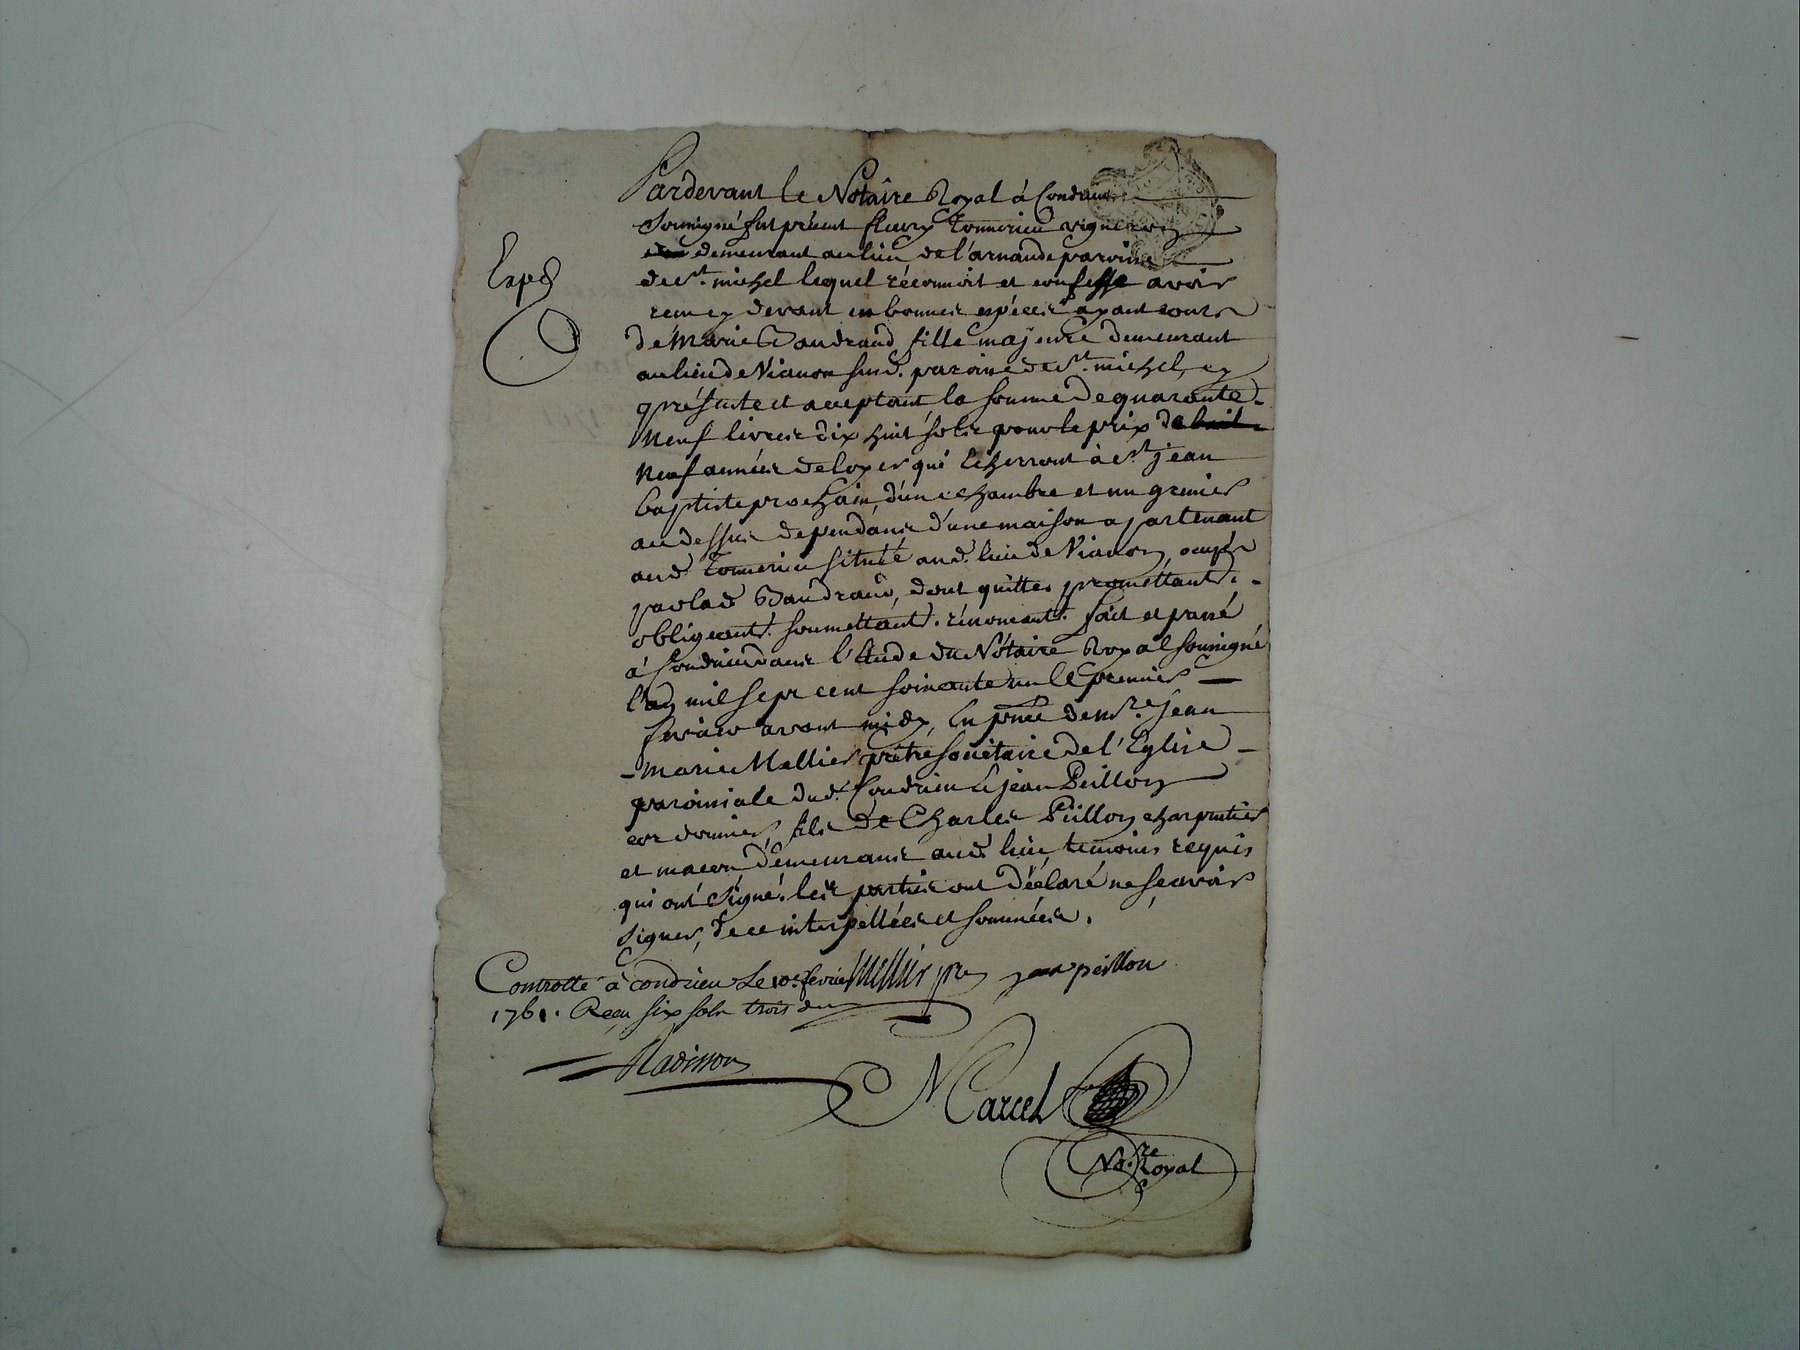 Pardevant le Notaire Royal à Condrieu
Soussigné fut présent fleury vigneron
demeurant au lieu de l'arnaude paroisse
de St. michel lequel réconnoit et confesse avoir
recu cy devant en bonnes espéces ayant cours
de Marie Baudrand fille majeure demeurant
au lieu de Vianon susd. paroisse de St. michel, cy
présente et acceptant la somme de quarante
Neuf livres dix huit sols pour le prix de huit
Neuf années de loyer qui écherront à St. jean
baptiste prochain, d'une chambre et un grenier
au dessus dependans d'une maison apartenant
aud. située aud. lieu de Vianon, ocupés
par lad. Baudrand, dont quitte, promettant.
obligeant. soumettant. rénonceant. fait et passé
à Condrieu dans l'étude du Nótaire Royal soussigné
l'an mil sept cent soixante un le premier
fevrier avant midy, En pnce de Mre. jean
marie Mellier prêtre sociétaire de l'Eglise
paroissiale dud. Condrieu & jean Peillon
cordonnier, fils de Charles Peillon charpentier
et macon demeurans aud. lieu, temoins requis
qui ont signé, les parties ont déclaré ne scavoir
signer, de ce interpellées et sommées.
Exped
Mellier ptre jean peillon
Controllé à condrieu Le 10e. fevrier
1761. Recu six sols trois den
Marcel
Nore. Royal